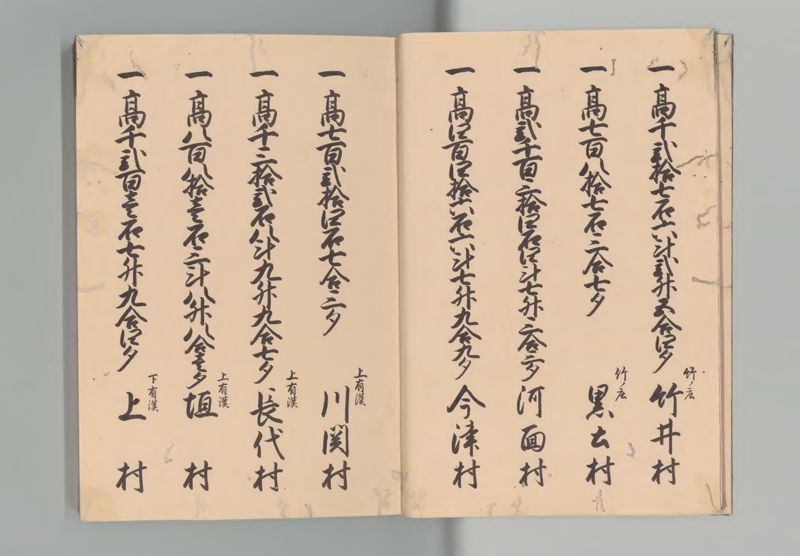 一高千弐拾七石六斗弐升五合四夕 竹ノ庄 竹井村
一高七百八拾七石三合七夕 竹ノ庄 黒土村
一高弐千百三拾四石四斗七升三合三夕 河面村
一高四百四拾六石六斗七升九合九夕 今津村
一高七百弐拾四石七合三夕 上有漢 川関村
一高千三拾弐石八斗九升九合七夕 上有漢 長代村
一高八百八拾壱石三斗八升八合壱夕 上有漢 垣村
一高千弐百壱石七升九合四夕 下有漢 上村